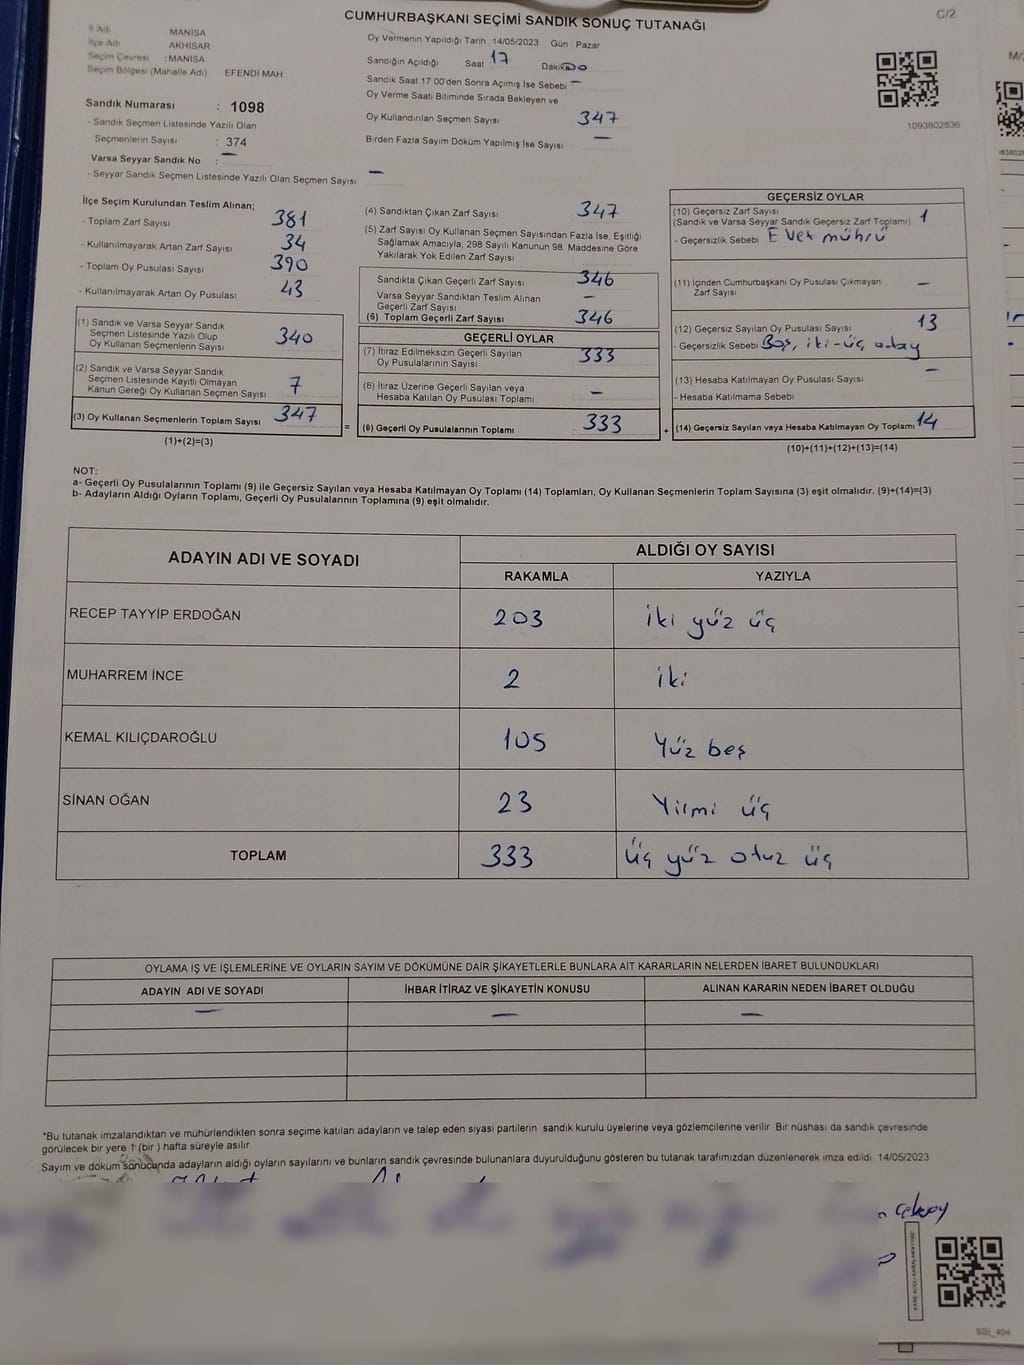 CUMHURBAŞKANI SEÇİMİ SANDIK SONUÇ TUTANAĞI
C/2
İl Adı MANİSA
İlçe Adı AKHİSAR
Seçim Çevresi : MANİSA
Seçim Bölgesi (Mahalle Adı) : EFENDİ MAH
Oy Vermenin Yapıldığı Tarih 14/05/2023 Gün Pazar
Sandığın Açıldığı Saat 17 Dakika 00
Sandık Saat 17:00'den Sonra Açımış İse Sebebi —
Oy Verme Saati Bitiminde Sırada Bekleyen ve
Oy Kullandırılan Seçmen Sayısı 347
Birden Fazla Sayım Döküm Yapılmış İse Sayısı : —
1093802836
Sandık Numarası : 1098
- Sandık Seçmen Listesinde Yazılı Olan
Seçmenlerin Sayısı : 374
Varsa Seyyar Sandık No : —
- Seyyar Sandık Seçmen Listesinde Yazılı Olan Seçmen Sayısı : —
İlçe Seçim Kurulundan Teslim Alınan;
- Toplam Zarf Sayısı 381
- Kullanılmayarak Artan Zarf Sayısı 34
- Toplam Oy Pusulası Sayısı 390
- Kullanılmayarak Artan Oy Pusulası 43
(1) Sandık ve Varsa Seyyar Sandık
Seçmen Listesinde Yazılı Olup
Oy Kullanan Seçmenlerin Sayısı 340
(2) Sandık ve Varsa Seyyar Sandık
Seçmen Listesinde Kayıtlı Olmayan
Kanun Gereği Oy Kullanan Seçmen Sayısı 7
(3) Oy Kullanan Seçmenlerin Toplam Sayısı 347
(1)+(2)=(3)
=
(4) Sandıktan Çıkan Zarf Sayısı 347
(5) Zarf Sayısı Oy Kullanan Seçmen Sayısından Fazla İse, Eşitliği
Sağlamak Amacıyla, 298 Sayılı Kanunun 98. Maddesine Göre
Yakılarak Yok Edilen Zarf Sayısı
Sandıkta Çıkan Geçerli Zarf Sayısı 346
Varsa Seyyar Sandıktan Teslim Alınan
Geçerli Zarf Sayısı —
(6) Toplam Geçerli Zarf Sayısı 346
GEÇERLİ OYLAR
(7) İtiraz Edilmeksizin Geçerli Sayılan
Oy Pusulalarının Sayısı 333
(8) İtiraz Üzerine Geçerli Sayılan veya
Hesaba Katılan Oy Pusulası Toplamı —
(9) Geçerli Oy Pusulalarının Toplamı : 333
+
GEÇERSİZ OYLAR
(10) Geçersiz Zarf Sayısı
(Sandık ve Varsa Seyyar Sandık Geçersiz Zarf Toplamı) 1
- Geçersizlik Sebebi Evet mührü
(11) İçinden Cumhurbaşkanı Oy Pusulası Çıkmayan
Zarf Sayısı —
(12) Geçersiz Sayılan Oy Pusulası Sayısı 13
- Geçersizlik Sebebi Boş, iki-üç aday
(13) Hesaba Katılmayan Oy Pusulası Sayısı —
- Hesaba Katılmama Sebebi
(14) Geçersiz Sayılan veya Hesaba Katılmayan Oy Toplamı 14
(10)+(11)+(12)+(13)=(14)
NOT:
a- Geçerli Oy Pusulalarının Toplamı (9) ile Geçersiz Sayılan veya Hesaba Katılmayan Oy Toplamı (14) Toplamları, Oy Kullanan Seçmenlerin Toplam Sayısına (3) eşit olmalıdır. (9)+(14)=(3)
b- Adayların Aldığı Oyların Toplamı, Geçerli Oy Pusulalarının Toplamına (9) eşit olmalıdır.
ADAYIN ADI VE SOYADI ALDIĞI OY SAYISI
RAKAMLA YAZIYLA
RECEP TAYYİP ERDOĞAN 203 iki yüz üç
MUHARREM İNCE 2 iki
KEMAL KILIÇDAROĞLU 105 Yüz beş
SİNAN OĞAN 23 Yirmi üç
TOPLAM 333 Üç yüz otuz üç
OYLAMA İŞ VE İŞLEMLERİNE VE OYLARIN SAYIM VE DÖKÜMÜNE DAİR ŞİKAYETLERLE BUNLARA AİT KARARLARIN NELERDEN İBARET BULUNDUKLARI
ADAYIN ADI VE SOYADI İHBAR İTİRAZ VE ŞİKAYETİN KONUSU ALINAN KARARIN NEDEN İBARET OLDUĞU
— — —
*Bu tutanak imzalandıktan ve mühürlendikten sonra seçime katılan adayların ve talep eden siyasi partilerin sandık kurulu üyelerine veya gözlemcilerine verilir. Bir nüshası da sandık çevresinde
görülecek bir yere 1 (bir) hafta süreyle asılır.
Sayım ve döküm sonucunda adayların aldığı oyların sayılarını ve bunların sandık çevresinde bulunanlara duyurulduğunu gösteren bu tutanak tarafımızdan düzenlenerek imza edildi. 14/05/2023
SSI_404